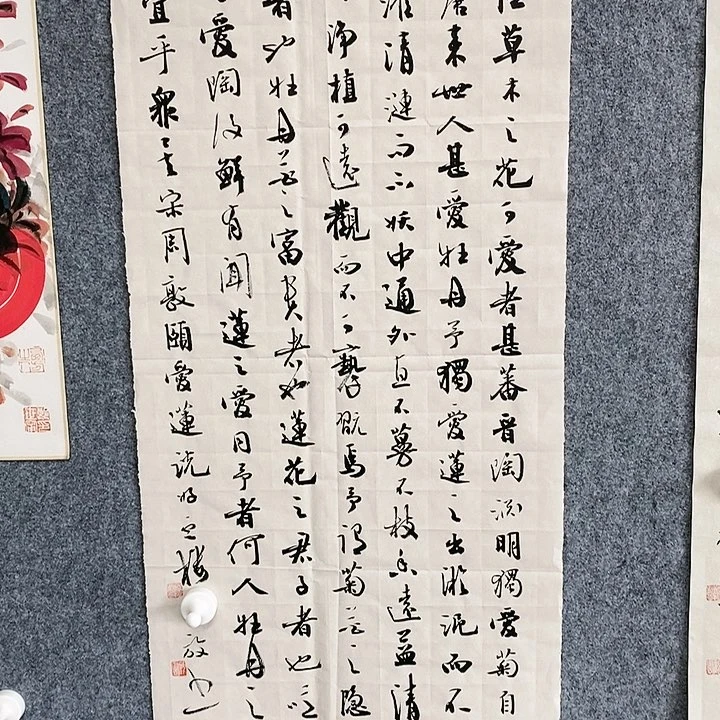 草木之花可愛者甚蕃晉陶淵明獨愛菊自
唐来世人甚愛牡丹予獨愛蓮之出淤泥而不
濯清漣而不妖中通外直不蔓不枝香遠益清
淨植可遠觀而不可褻翫焉予謂菊花之隱
者也牡丹花之富貴者也蓮花之君子者也噫
愛陶後鮮有聞蓮之愛同予者何人牡丹之
宜乎衆矣宋周敦頤愛蓮説